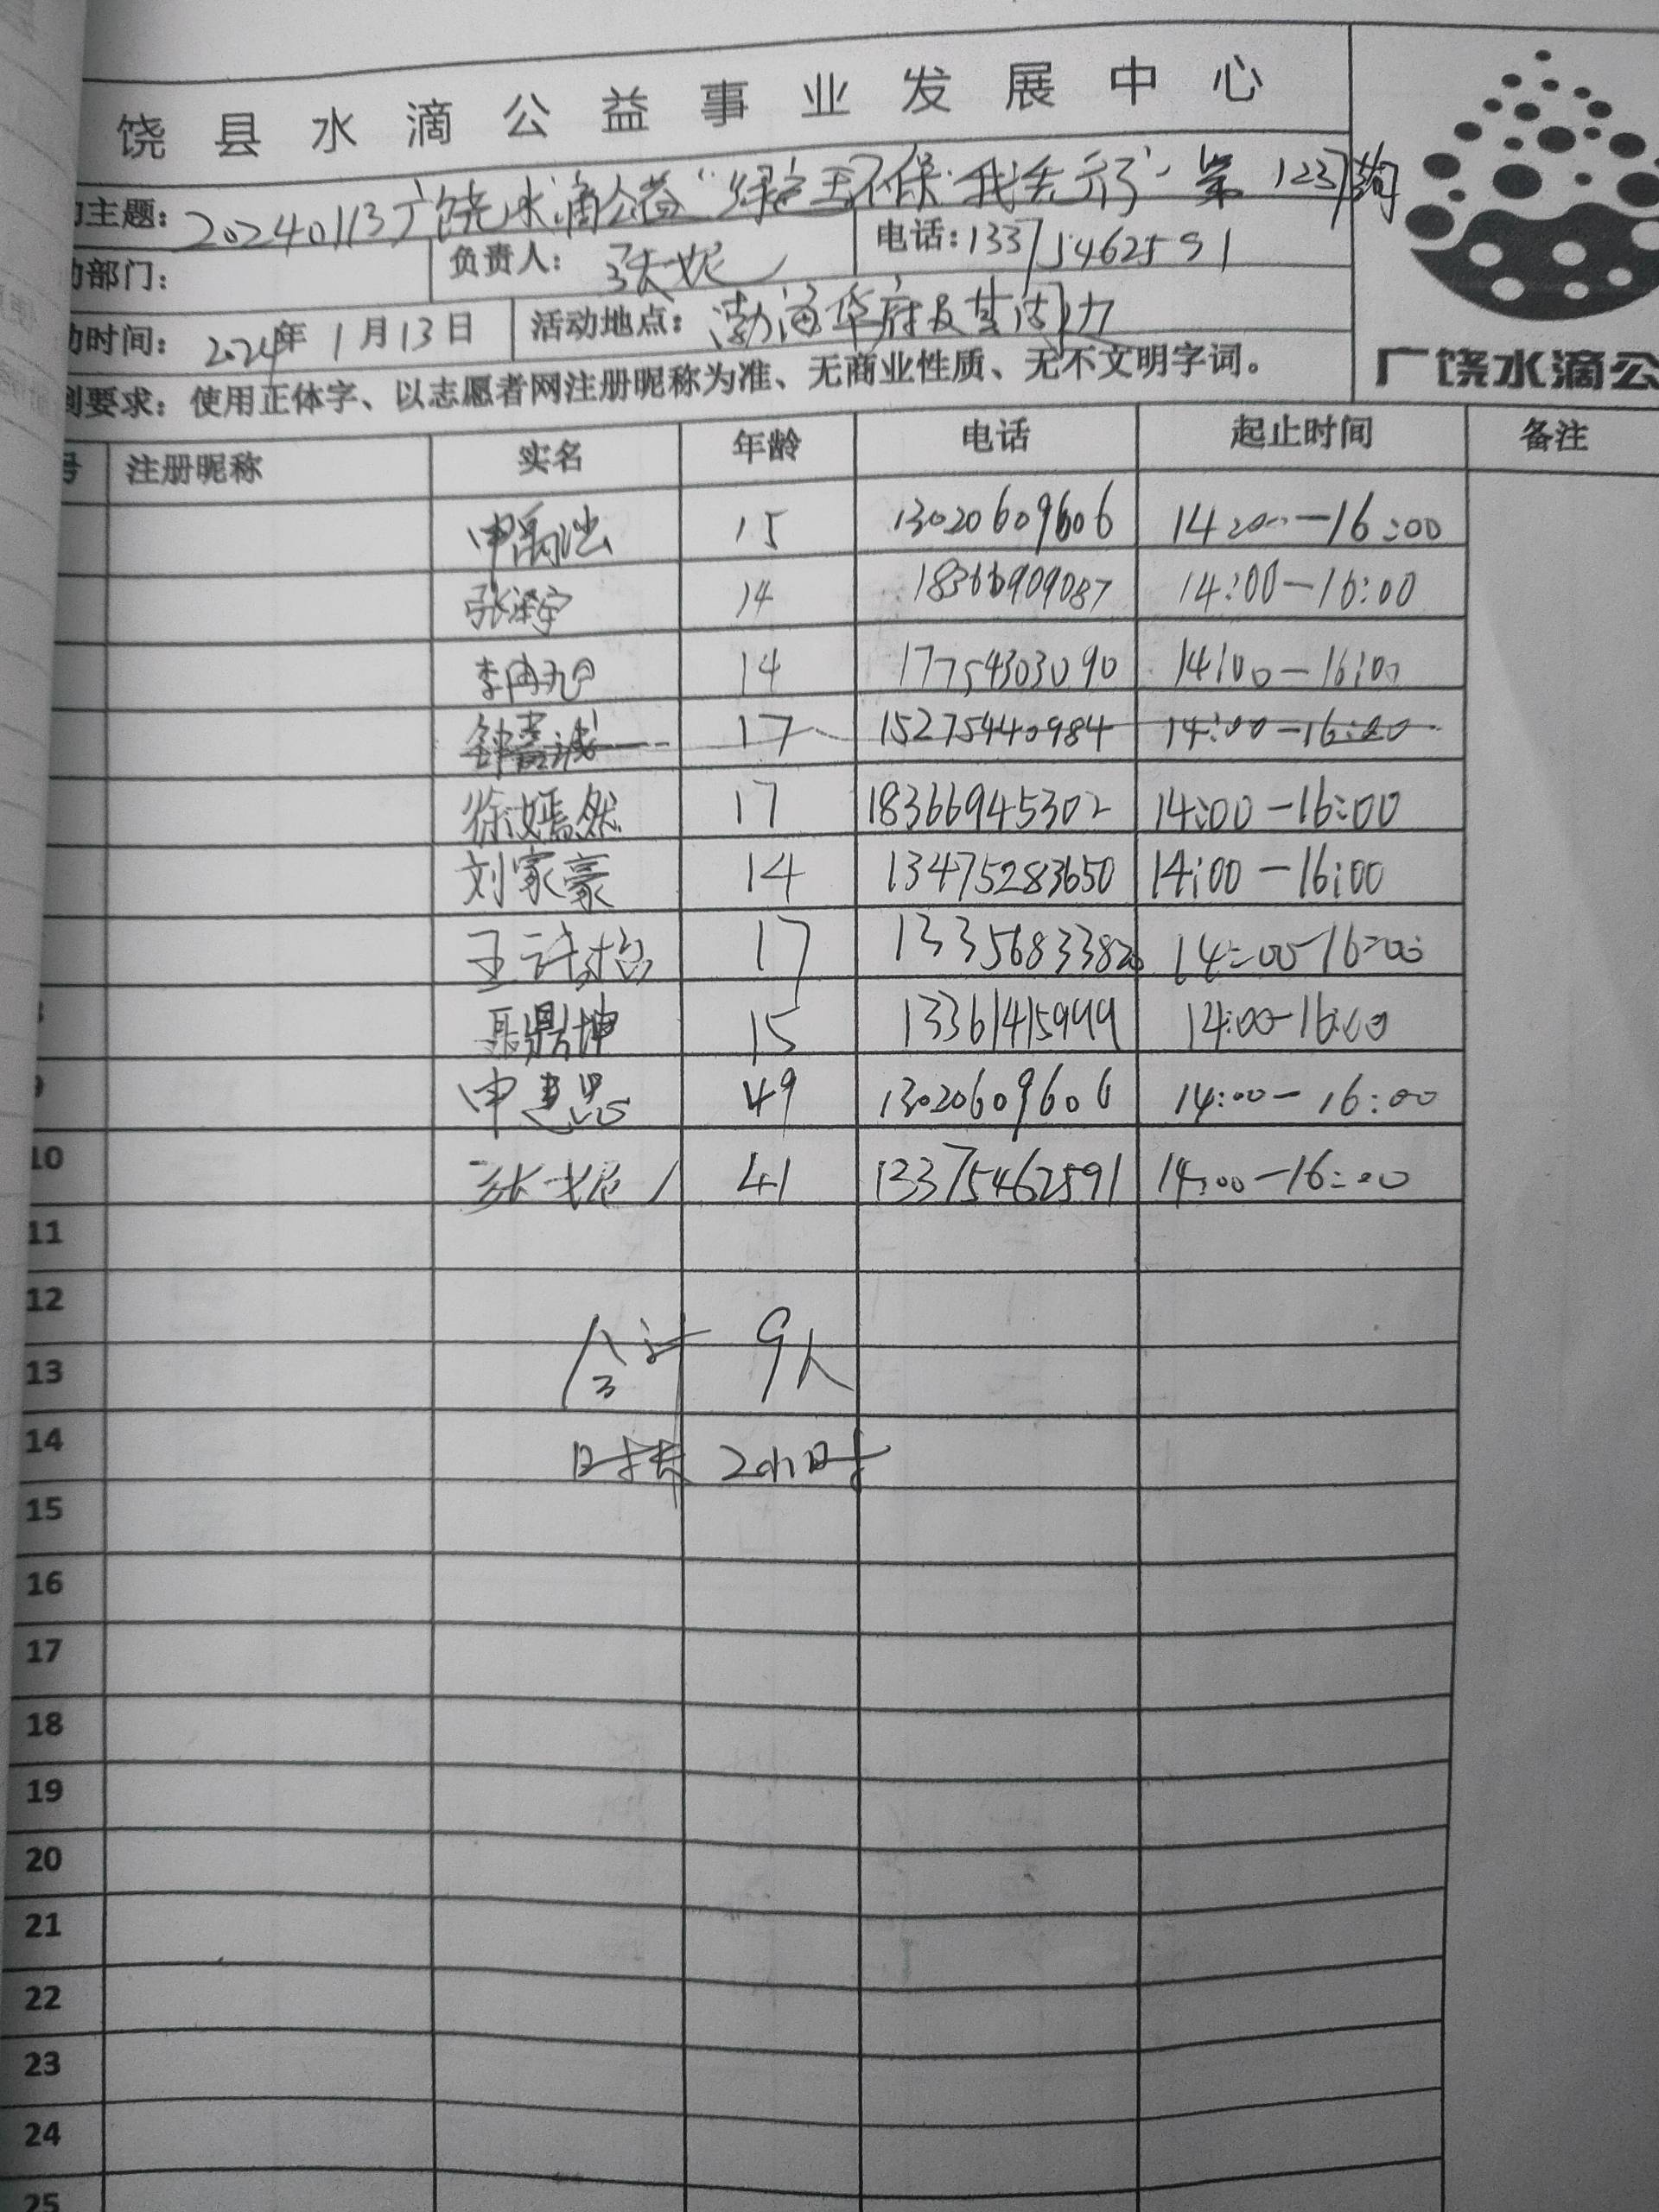 饶县水滴公益事业发展中心
动主题：20240113广饶水滴公益“绿色环保·我先行”第1237期
动部门： 负责人：张妮 电话：13375462591
动时间：2024年1月13日 活动地点：渤海华府及其周边
到要求：使用正体字、以志愿者网注册昵称为准、无商业性质、无不文明字词。
广饶水滴公
号 注册昵称 实名 年龄 电话 起止时间 备注
15 13020609606 14:00—16:00
14 18366909087 14:00—16:00
14 17754303090 14:00—16:00
17 15275440984 14:00—16:00
徐嫣然 17 18366945302 14:00—16:00
刘家豪 14 13475283650 14:00—16:00
17 13356833820 14:00-16:00
聂鼎坤 15 13361415999 14:00-16:00
申惠思 49 13020609606 14:00—16:00
10 张妮 41 13375462591 14:00—16:00
11
12
合计 9人
13
14
时长 2小时
15
16
17
18
19
20
21
22
23
24
25